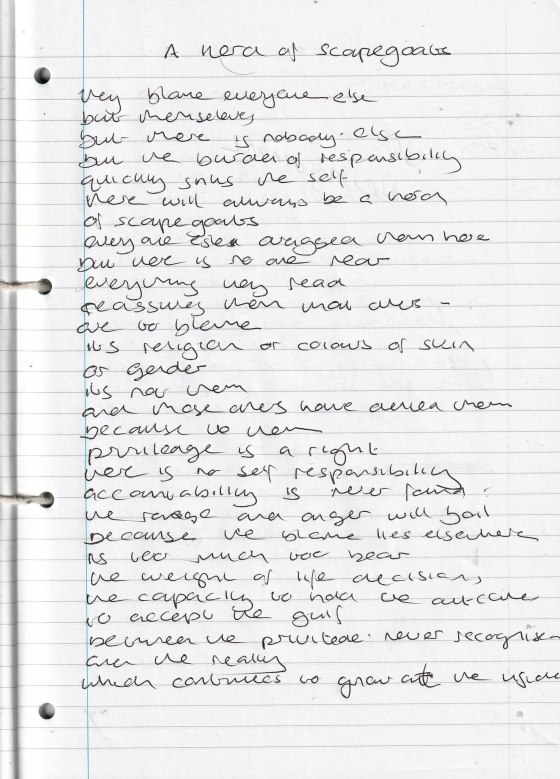 A herd of scapegoats
they blame everyone else
but themselves
but there is nobody else
but the burden of responsibility
quickly sinks the self
there will always be a herd
of scapegoats
everyone else dragged them here
but there is no one near
everything they read
reassures them that others -
are to blame
its religion or colours of skin
or gender
its not them
and those others have denied them
because to them
priviledge is a right
there is no self responsibility
accountability is never found.
the rage and anger will boil
because the blame lies elsewhere
its too much too bear
the weight of life decisions
the capacity to hold the outcome
to accept the gulf
between the priviledge never recognised
and the reality
which continues to gnaw at the